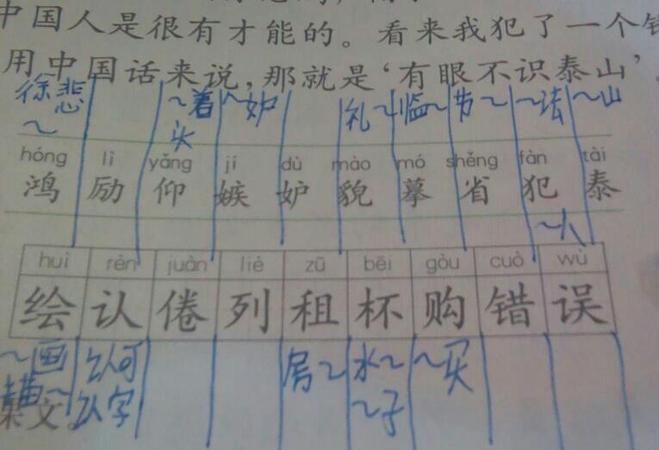 中国人是很有才能的。看来我犯了一个错
用中国话来说，那就是‘有眼不识泰山’
徐悲～ ～着头 ～妒 礼～ 临～ 节～ ～法 ～山
hóng lì yǎng jí dù mào mó shěng fàn tài
鸿 励 仰 嫉 妒 貌 摹 省 犯 泰
～人
huì rèn juàn liè zū bēi gòu cuò wù
绘 认 倦 列 租 杯 购 错 误
～画 房～ 水～ ～买
描～ ～字 ～子